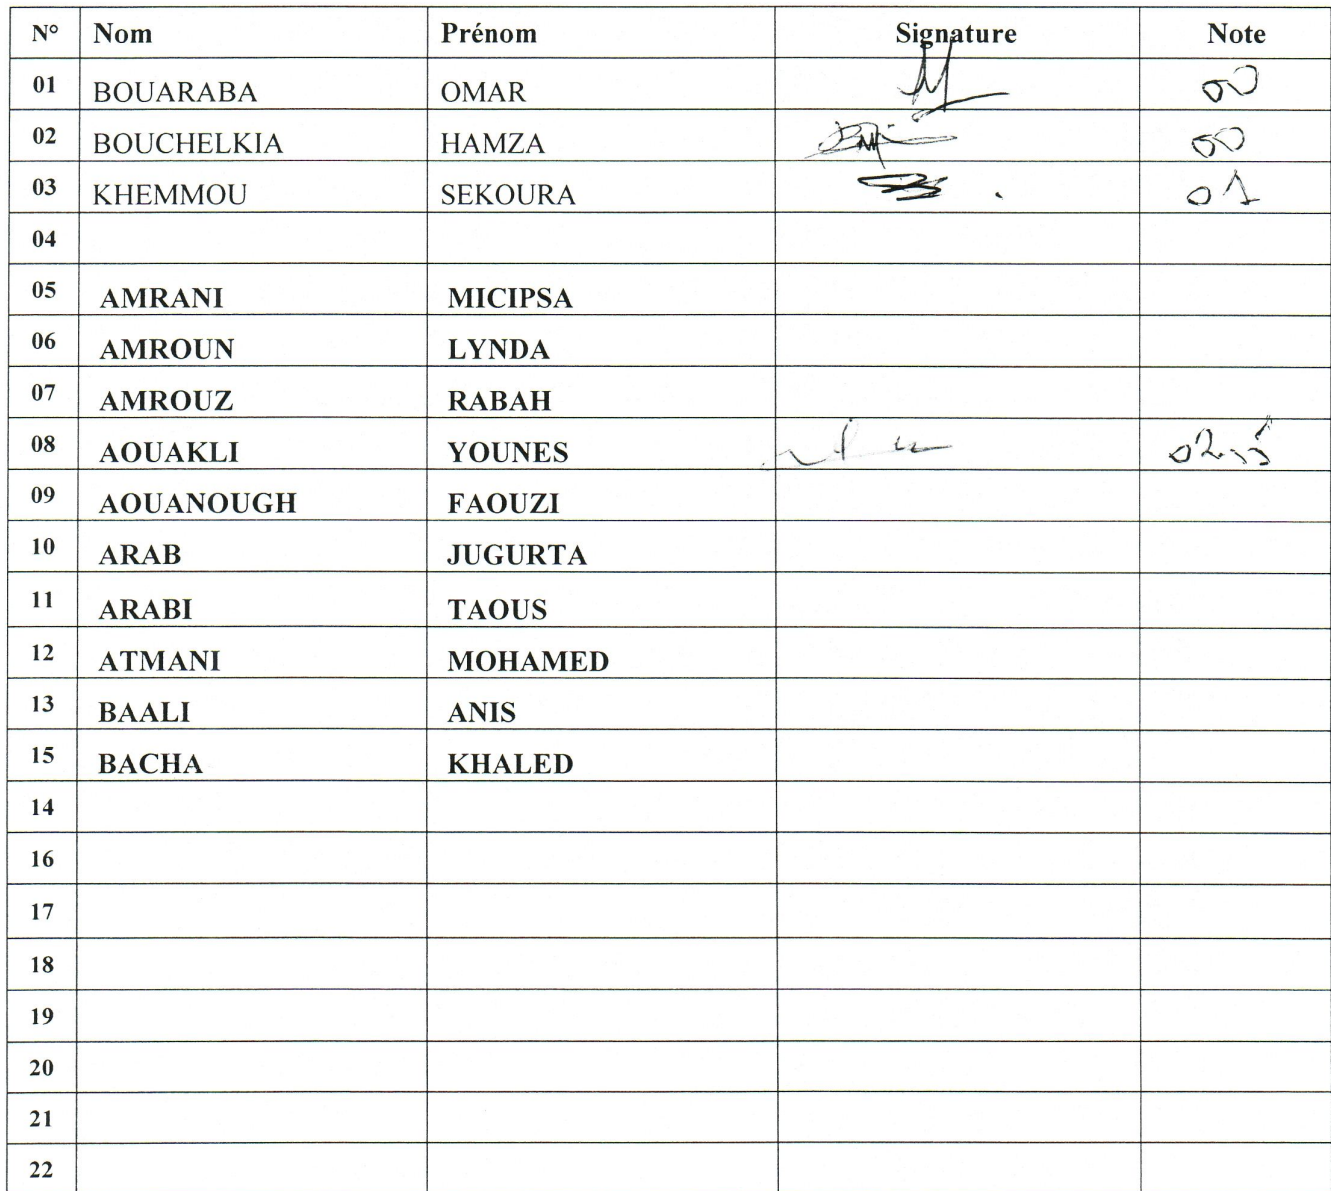 N° Nom Prénom Signature Note
01 BOUARABA OMAR 00
02 BOUCHELKIA HAMZA 00
03 KHEMMOU SEKOURA 01
04
05 AMRANI MICIPSA
06 AMROUN LYNDA
07 AMROUZ RABAH
08 AOUAKLI YOUNES
09 AOUANOUGH FAOUZI
10 ARAB JUGURTA
11 ARABI TAOUS
12 ATMANI MOHAMED
13 BAALI ANIS
15 BACHA KHALED
14
16
17
18
19
20
21
22